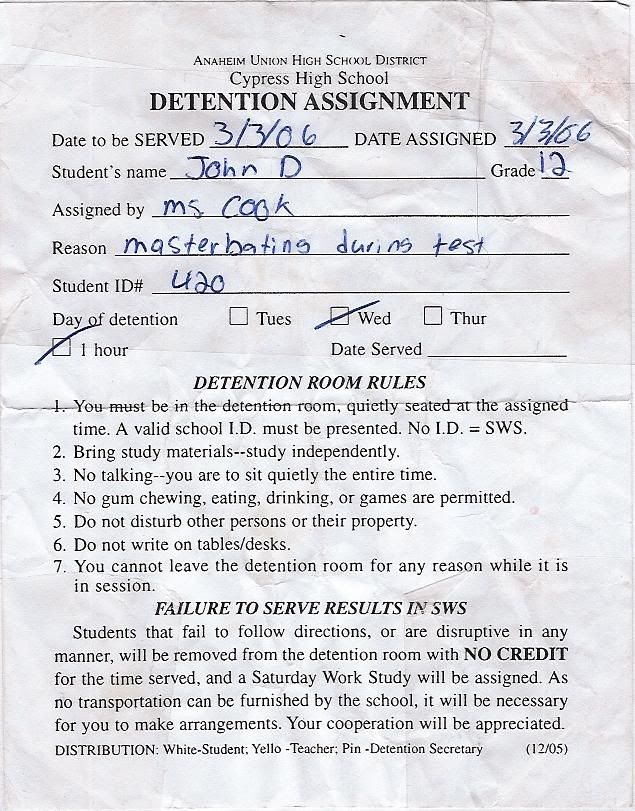 ANAHEIM UNION HIGH SCHOOL DISTRICT
Cypress High School
DETENTION ASSIGNMENT
Date to be SERVED 3/3/06 DATE ASSIGNED 3/3/06
Student's name John D Grade 12
Assigned by ms COOK
Reason masterbating during test
Student ID# 420
Day of detention Tues Wed Thur
1 hour Date Served
DETENTION ROOM RULES
1. You must be in the detention room, quietly seated at the assigned
time. A valid school I.D. must be presented. No I.D. = SWS.
2. Bring study materials--study independently.
3. No talking--you are to sit quietly the entire time.
4. No gum chewing, eating, drinking, or games are permitted.
5. Do not disturb other persons or their property.
6. Do not write on tables/desks.
7. You cannot leave the detention room for any reason while it is
in session.
FAILURE TO SERVE RESULTS IN SWS
Students that fail to follow directions, or are disruptive in any
manner, will be removed from the detention room with NO CREDIT
for the time served, and a Saturday Work Study will be assigned. As
no transportation can be furnished by the school, it will be necessary
for you to make arrangements. Your cooperation will be appreciated.
DISTRIBUTION: White-Student; Yello -Teacher; Pin -Detention Secretary (12/05)